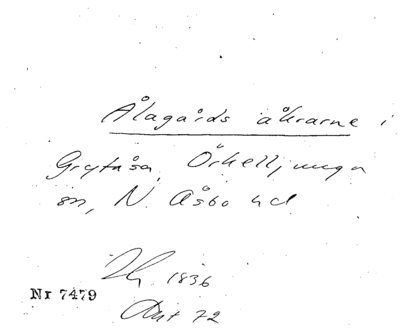 Ålagårds åkrarne i
Grytåsa, Örkelljunga
sn, N. Åsbo hd
1836
Nr 7479
72